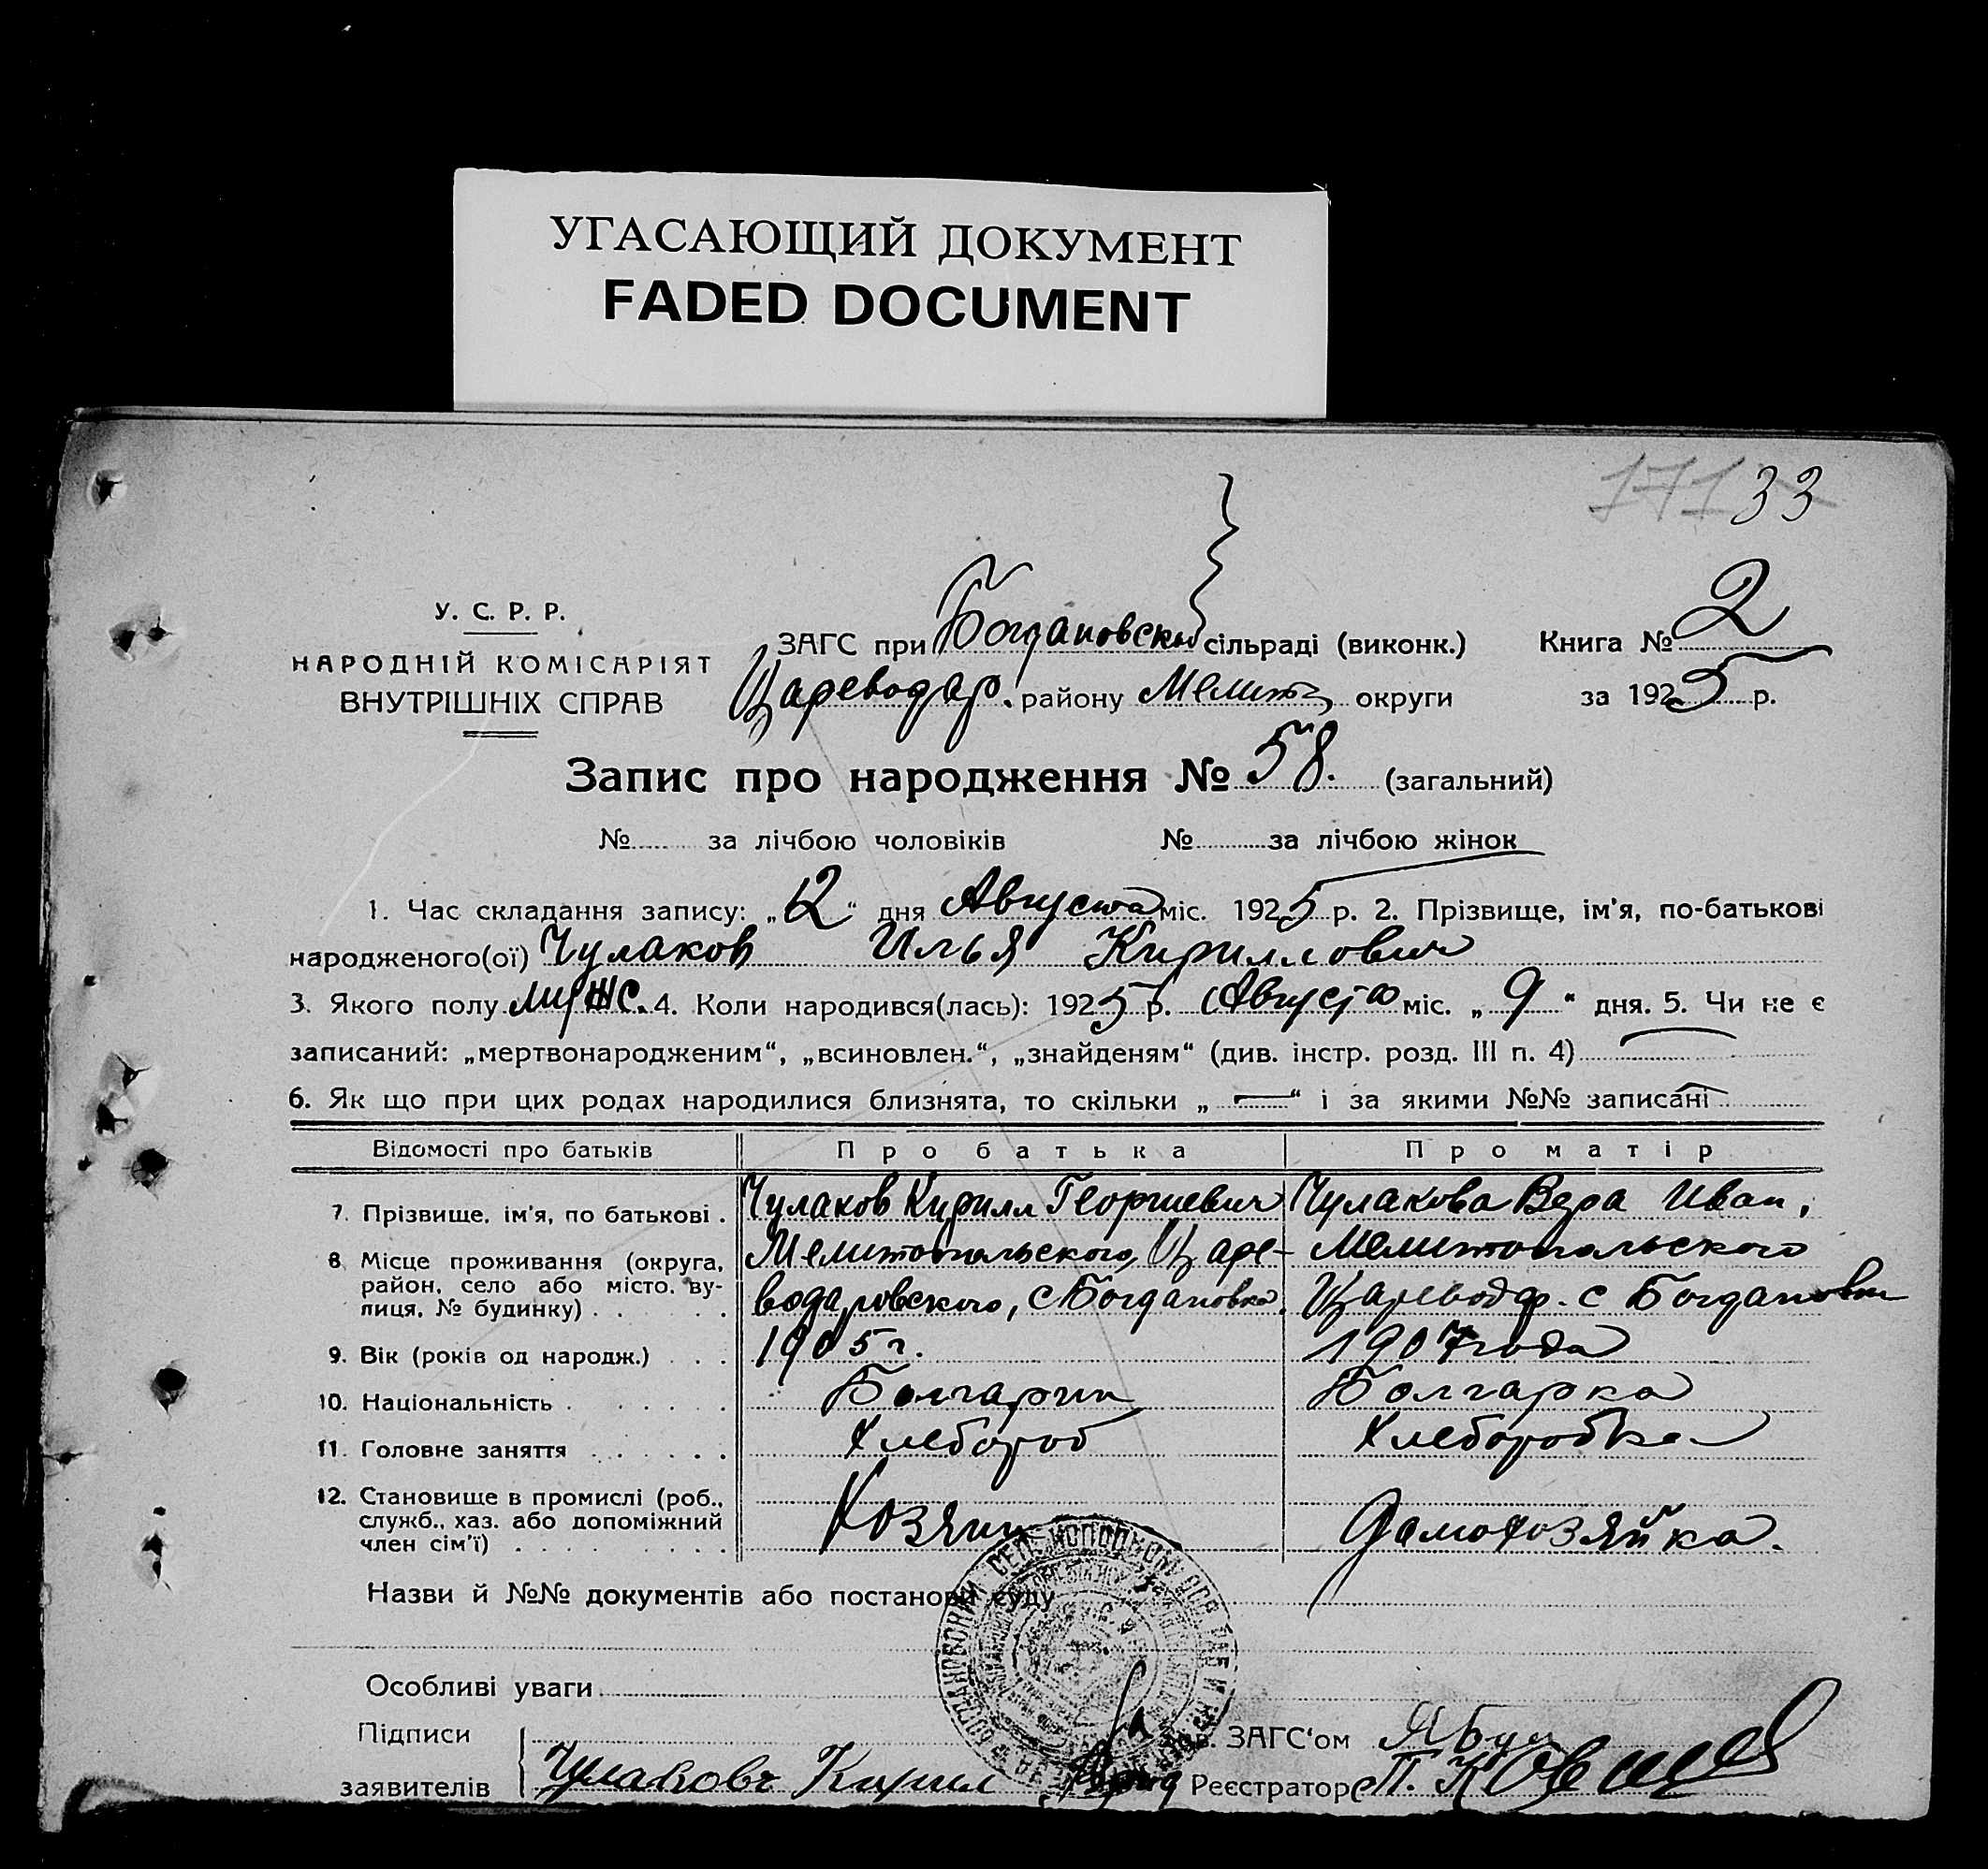 УГАСАЮЩИЙ ДОКУМЕНТ
FADED DOCUMENT
171 33
У. С. Р. Р.
НАРОДНІЙ КОМІСАРІЯТ
ВНУТРІШНІХ СПРАВ
ЗАГС при Богдановской сільраді (виконк.) Книга № 2
Цареводар. району Мелит. округи за 1925 р.
Запис про народження № 58. (загальний)
№ за лічбою чоловіків № за лічбою жінок
1. Час складання запису: „12“ дня Августа міс. 1925 р. 2. Прізвище, ім'я, по-батькові
народженого(ої) Чулаков Илья Кириллович
3. Якого полу муж. 4. Коли народився(лась): 1925 р. Августа міс. „9“ дня. 5. Чи не є
записаний: „мертвонародженим“, „всиновлен.“, „знайденям“ (див. інстр. розд. III п. 4)
6. Як що при цих родах народилися близнята, то скільки „—“ і за якими №№ записані
Відомості про батьків Про батька Про матір
7. Прізвище, ім'я, по батькові . Чулаков Кирилл Георгиевич Чулакова Вера Иван.
8. Місце проживання (округа, район, село або місто, вулиця, № будинку) . . . Мелитопольского, Царе-
водаровского, с Богдановка. Мелитопольского
Цареводар. с Богдановка
9. Вік (років од народж.) . . . 1905 г. 1907 года
10. Національність . . . . . . Болгарин Болгарка
11. Головне заняття . . . . . . Хлебороб Хлеборобка
12. Становище в промислі (роб., служб., хаз. або допоміжний член сім'ї) . . . Хозяин Домохозяйка.
Назви й №№ документів або постанови суду
Особливі уваги
Підписи Зав. ЗАГС'ом
заявителів Чулаковъ Кирил Реєстратор